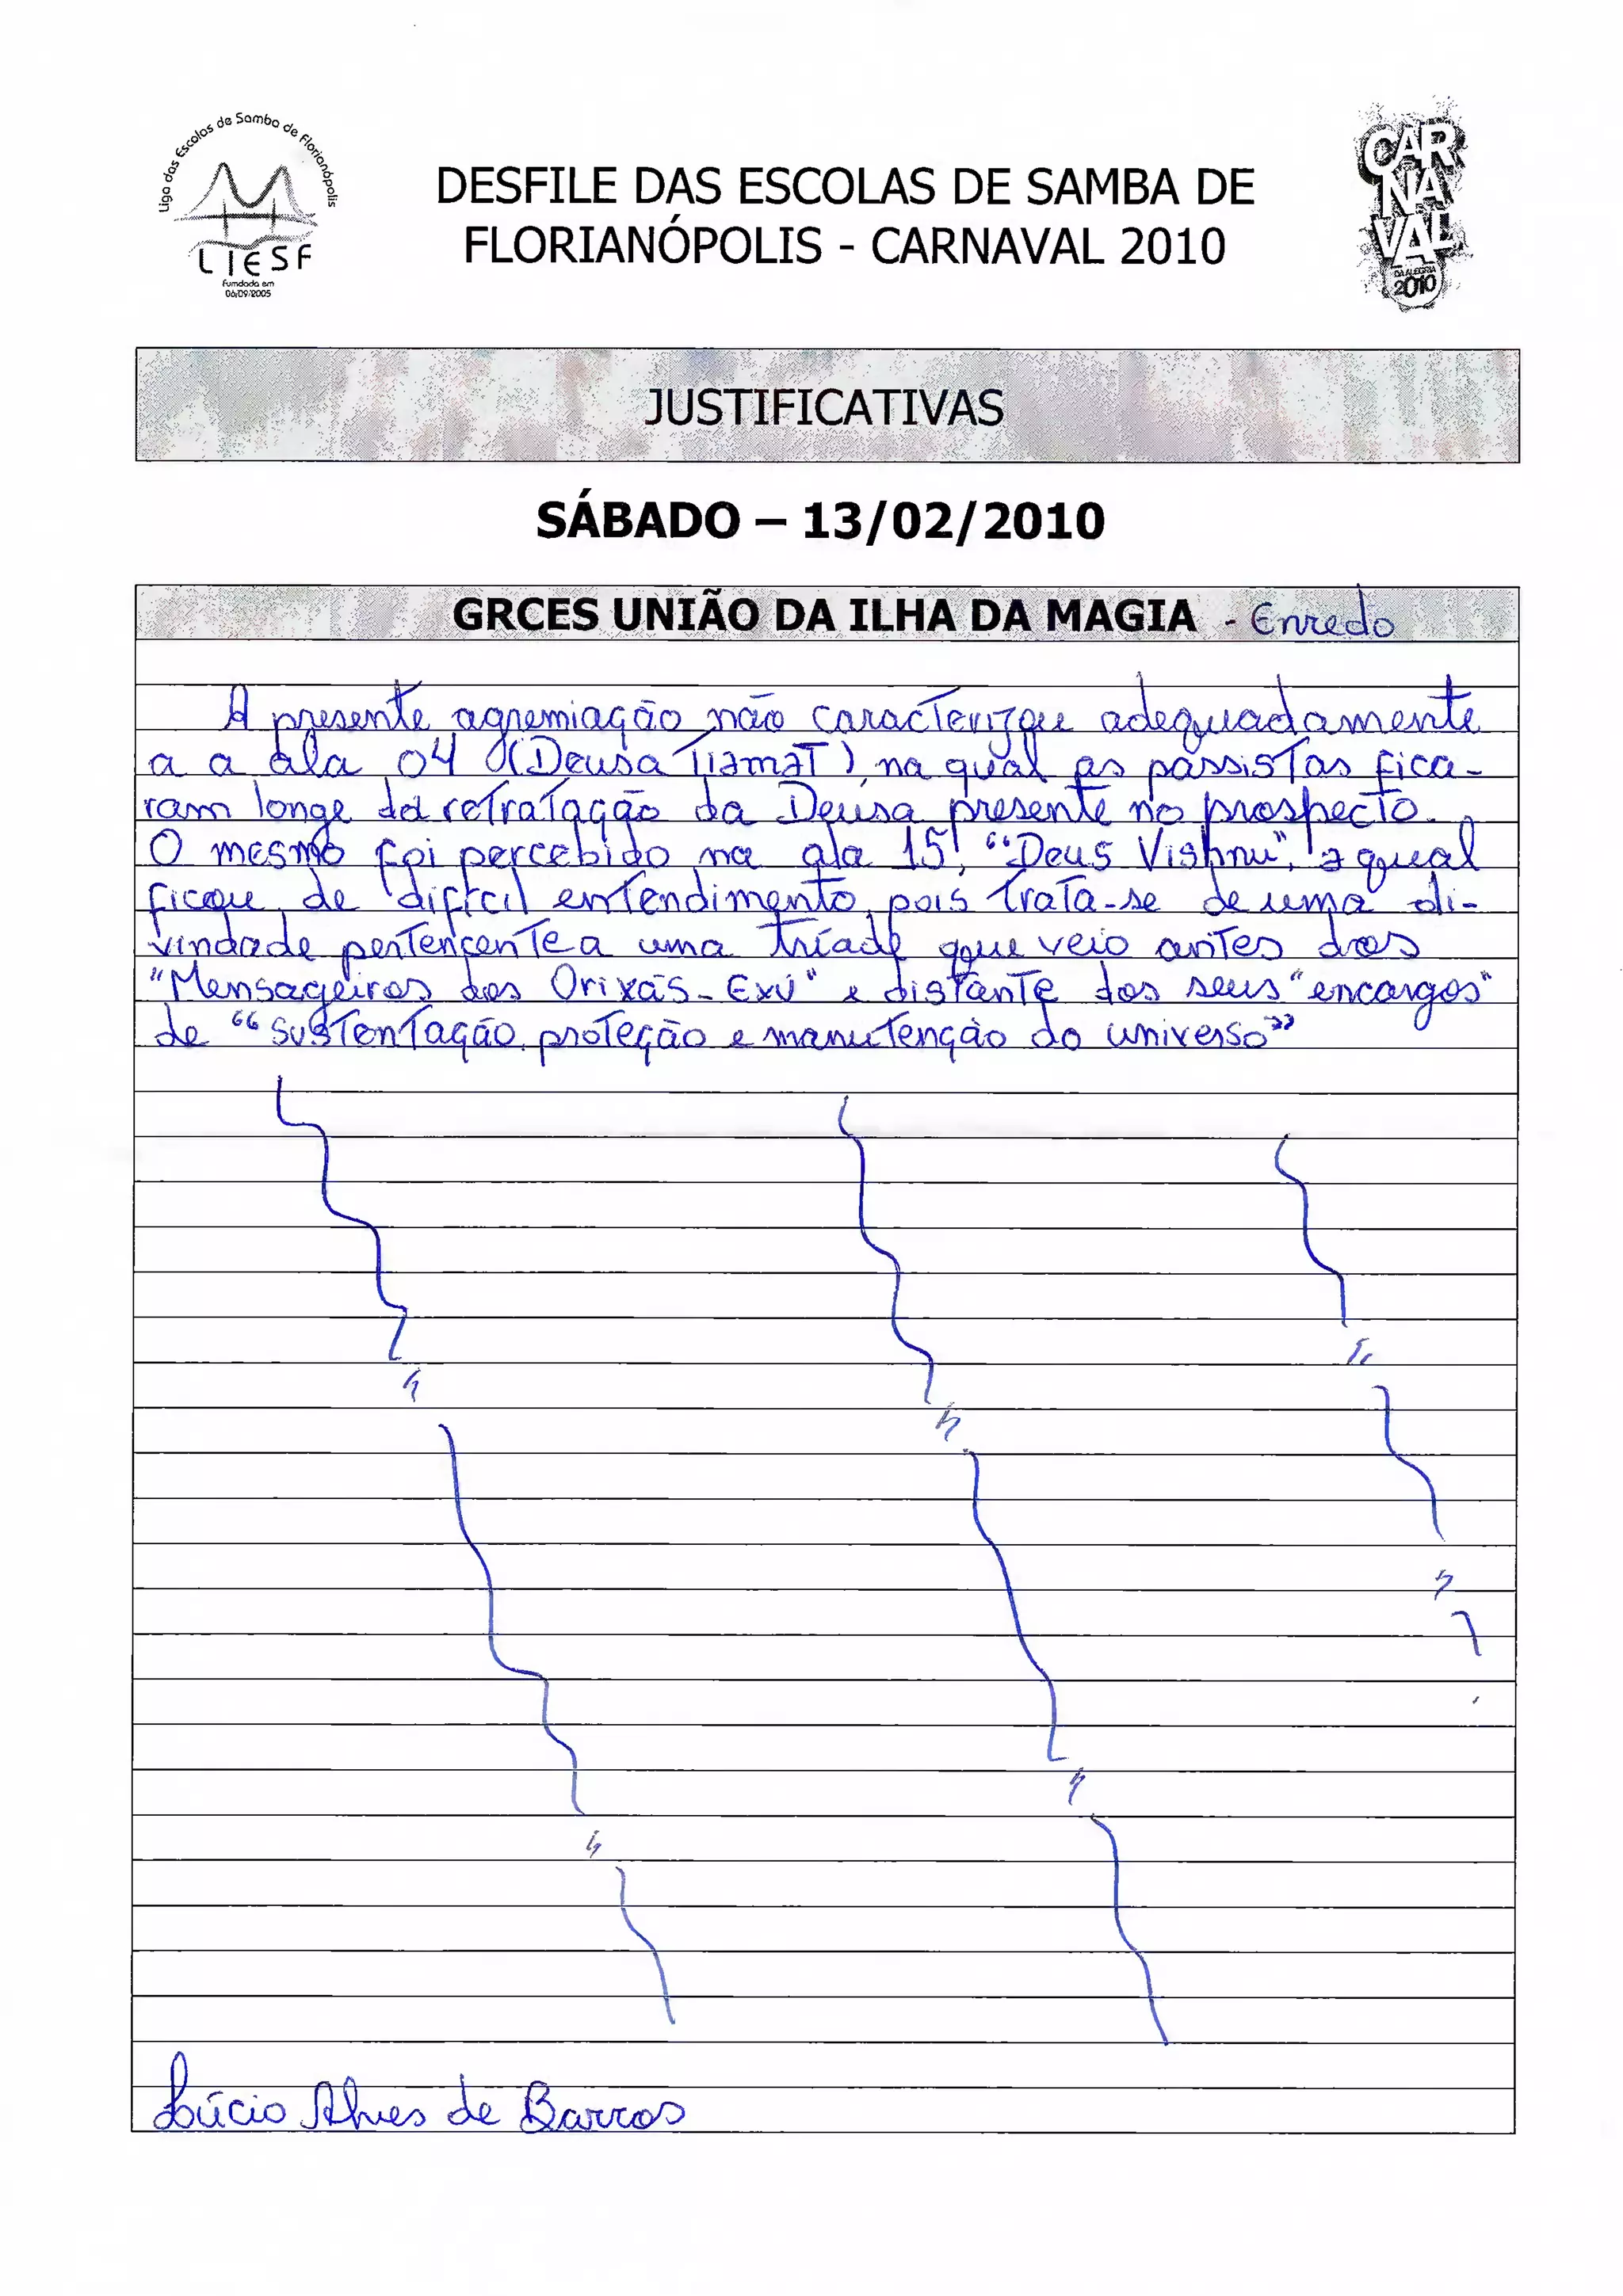 Liga das Escolas de Samba de Florianópolis
LIESF
Fundada em
06/09/2005
DESFILE DAS ESCOLAS DE SAMBA DE
FLORIANÓPOLIS - CARNAVAL 2010
CAR
NA
VAL
DA ALEGRIA
2010
JUSTIFICATIVAS
SÁBADO – 13/02/2010
GRCES UNIÃO DA ILHA DA MAGIA - Enredo
A presente agremiação não caracterizou adequadamente
a a ala 04 (Deusa Tiamat), na qual as passistas fica-
ram longe da retratação da Deusa presente no prospecto.
O mesmo foi percebido na ala 15, "Deus Vishnu", a qual
ficou de difícil entendimento, pois trata-se de uma di-
vindade pertencente a uma tríade que veio antes dos
"Mensageiros dos Orixás - Exú" e distante dos seus "encargos"
de "sustentação, proteção e manutenção do universo"
Lúcio Alves de Barros